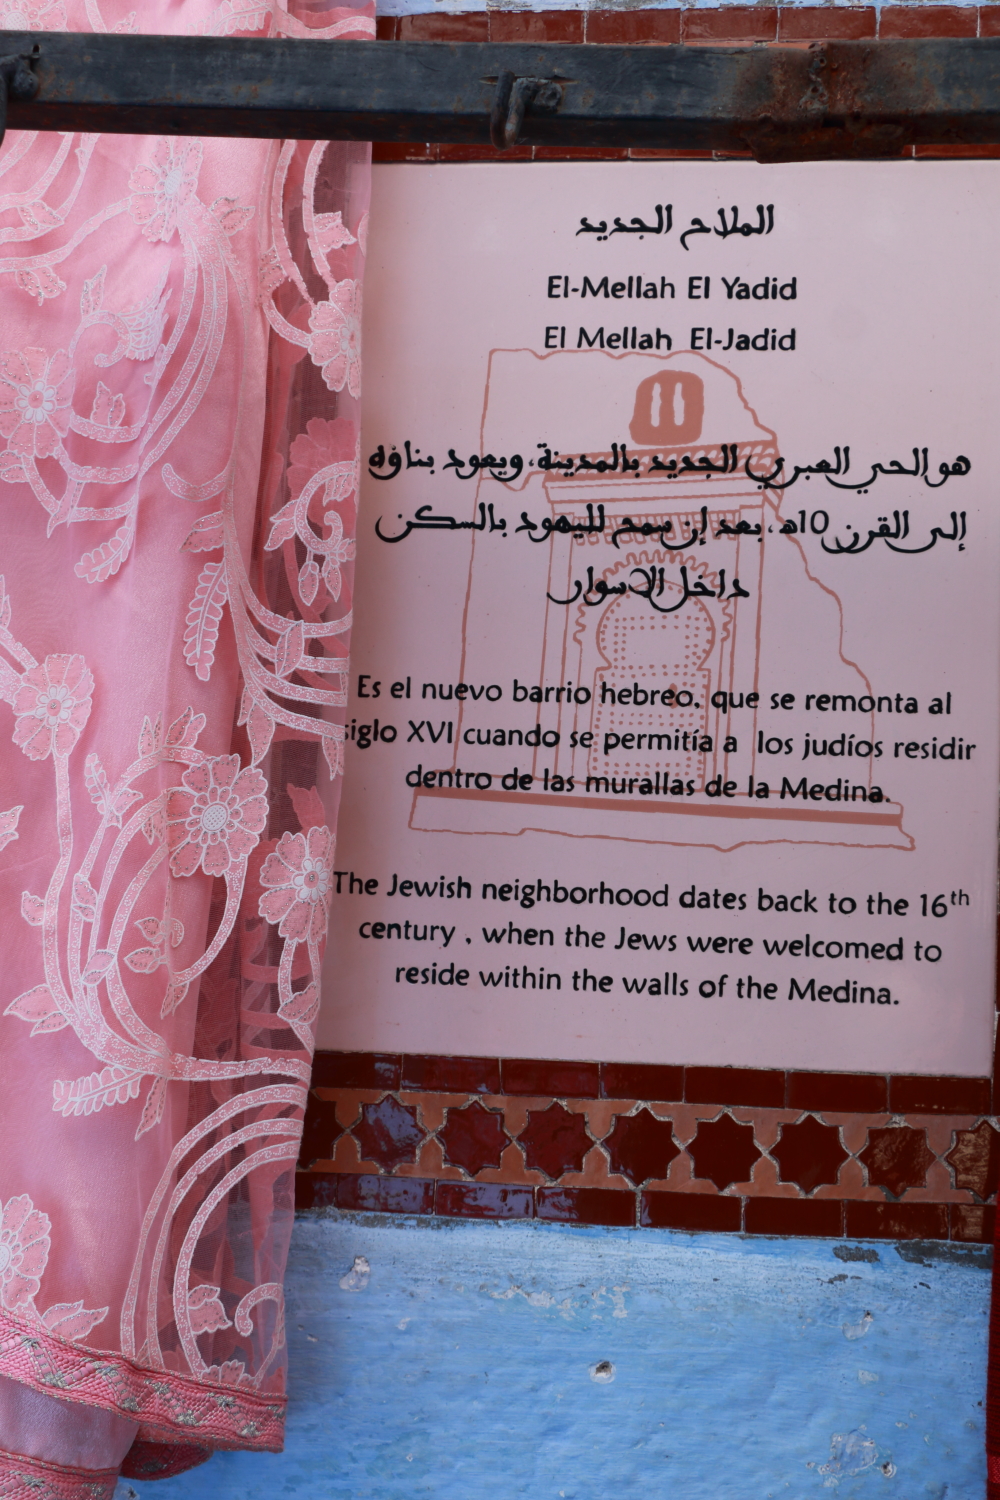 الملاح الجديد
El-Mellah El Yadid
El Mellah El-Jadid
هو الحي العبري الجديد بالمدينة، ويعود بناؤه
إلى القرن 10هـ، بعد إن سمح لليهود بالسكن
داخل الاسوار
Es el nuevo barrio hebreo, que se remonta al
siglo XVI cuando se permitía a los judíos residir
dentro de las murallas de la Medina.
The Jewish neighborhood dates back to the 16th
century , when the Jews were welcomed to
reside within the walls of the Medina.